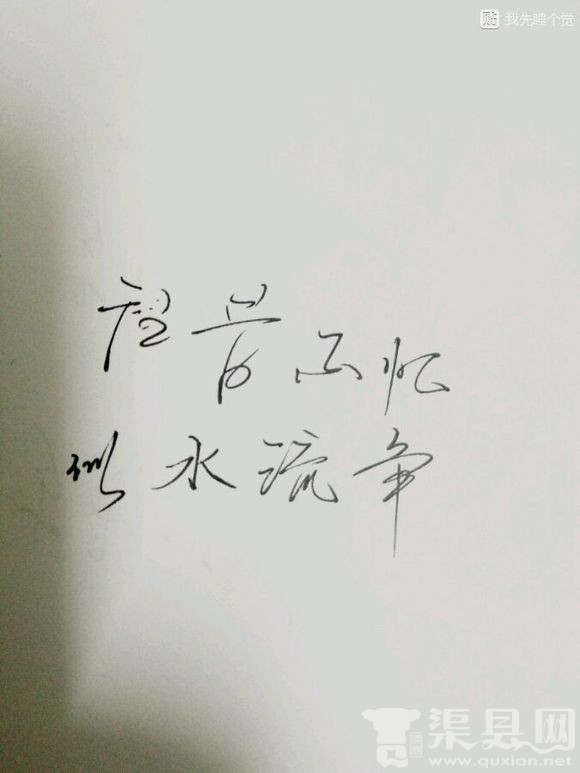 贴 我先睡个觉
如昔回忆
似水流年
渠县网
www.quxian.net